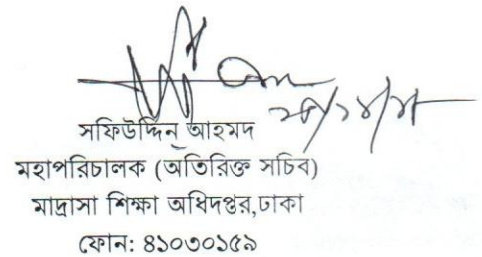 সফিউদ্দিন আহমদ
মহাপরিচালক (অতিরিক্ত সচিব)
মাদ্রাসা শিক্ষা অধিদপ্তর,ঢাকা
ফোন: ৪১০৩০১৫৯